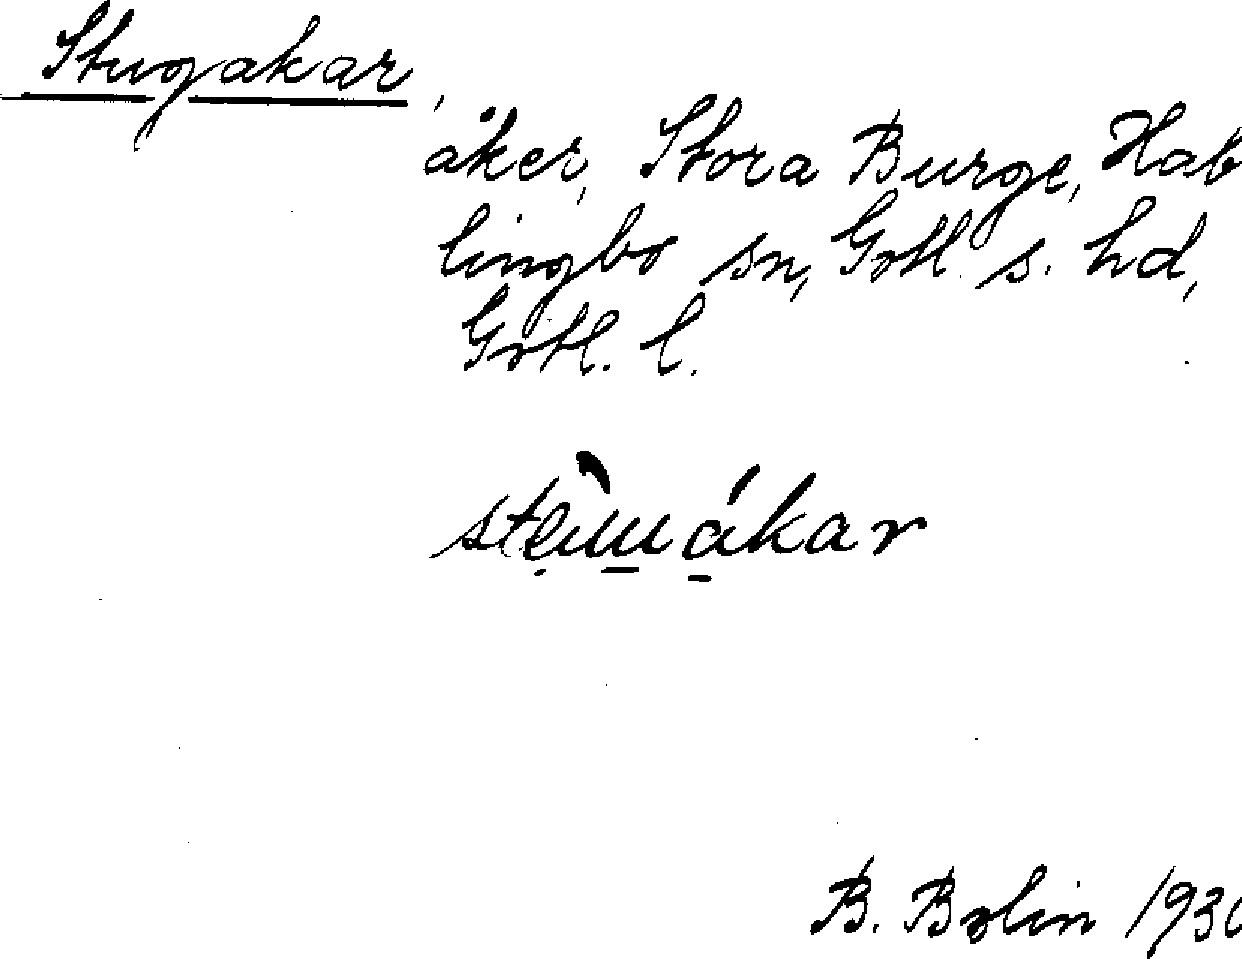 Stugakar,
åker, Stora Burge, Hab
lingbo sn, Gotl. s. hd,
Gotl. l.
B. Bolin